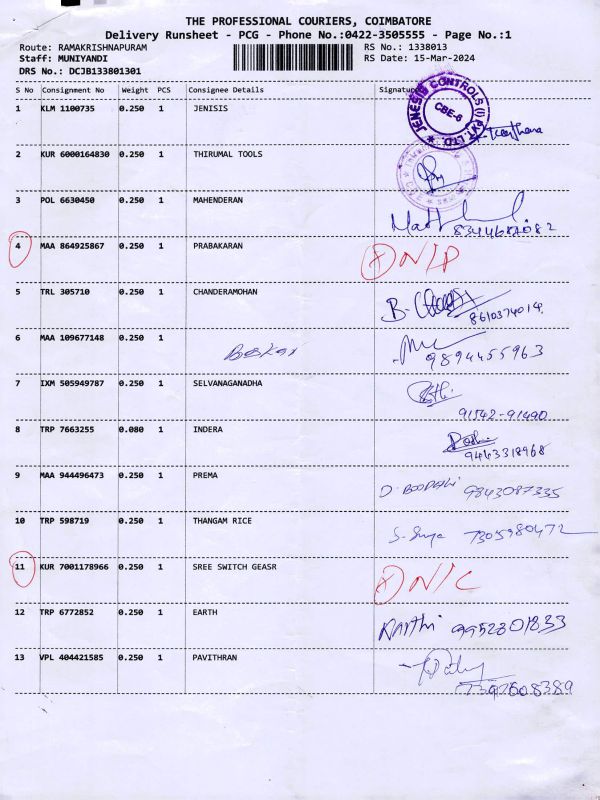 THE PROFESSIONAL COURIERS, COIMBATORE
Delivery Runsheet - PCG - Phone No.:0422-3505555 - Page No.:1
Route: RAMAKRISHNAPURAM RS No.: 1338013
Staff: MUNIYANDI RS Date: 15-Mar-2024
DRS No.: DCJB133801301
S No Consignment No Weight PCS Consignee Details Signature
1 KLM 1100735 0.250 1 JENISIS
JENESIS CONTROLS (I) PVT. LTD. CBE-6
2 KUR 6000164830 0.250 1 THIRUMAL TOOLS
3 POL 6630450 0.250 1 MAHENDERAN
8344687082
4 MAA 864925867 0.250 1 PRABAKARAN X N/P
5 TRL 305710 0.250 1 CHANDERAMOHAN B.
8610374014
6 MAA 109677148 0.250 1
Baskar 9894455963
7 IXM 505949787 0.250 1 SELVANAGANADHA
91542-91490
8 TRP 7663255 0.080 1 INDERA
9443318968
9 MAA 944496473 0.250 1 PREMA
D. BOOPATHI 9843087335
10 TRP 598719 0.250 1 THANGAM RICE
S. Surya 7305980472
11 KUR 7001178966 0.250 1 SREE SWITCH GEASR X N/C
12 TRP 6772852 0.250 1 EARTH
Karthi 9952301833
13 VPL 404421585 0.250 1 PAVITHRAN
7397608389